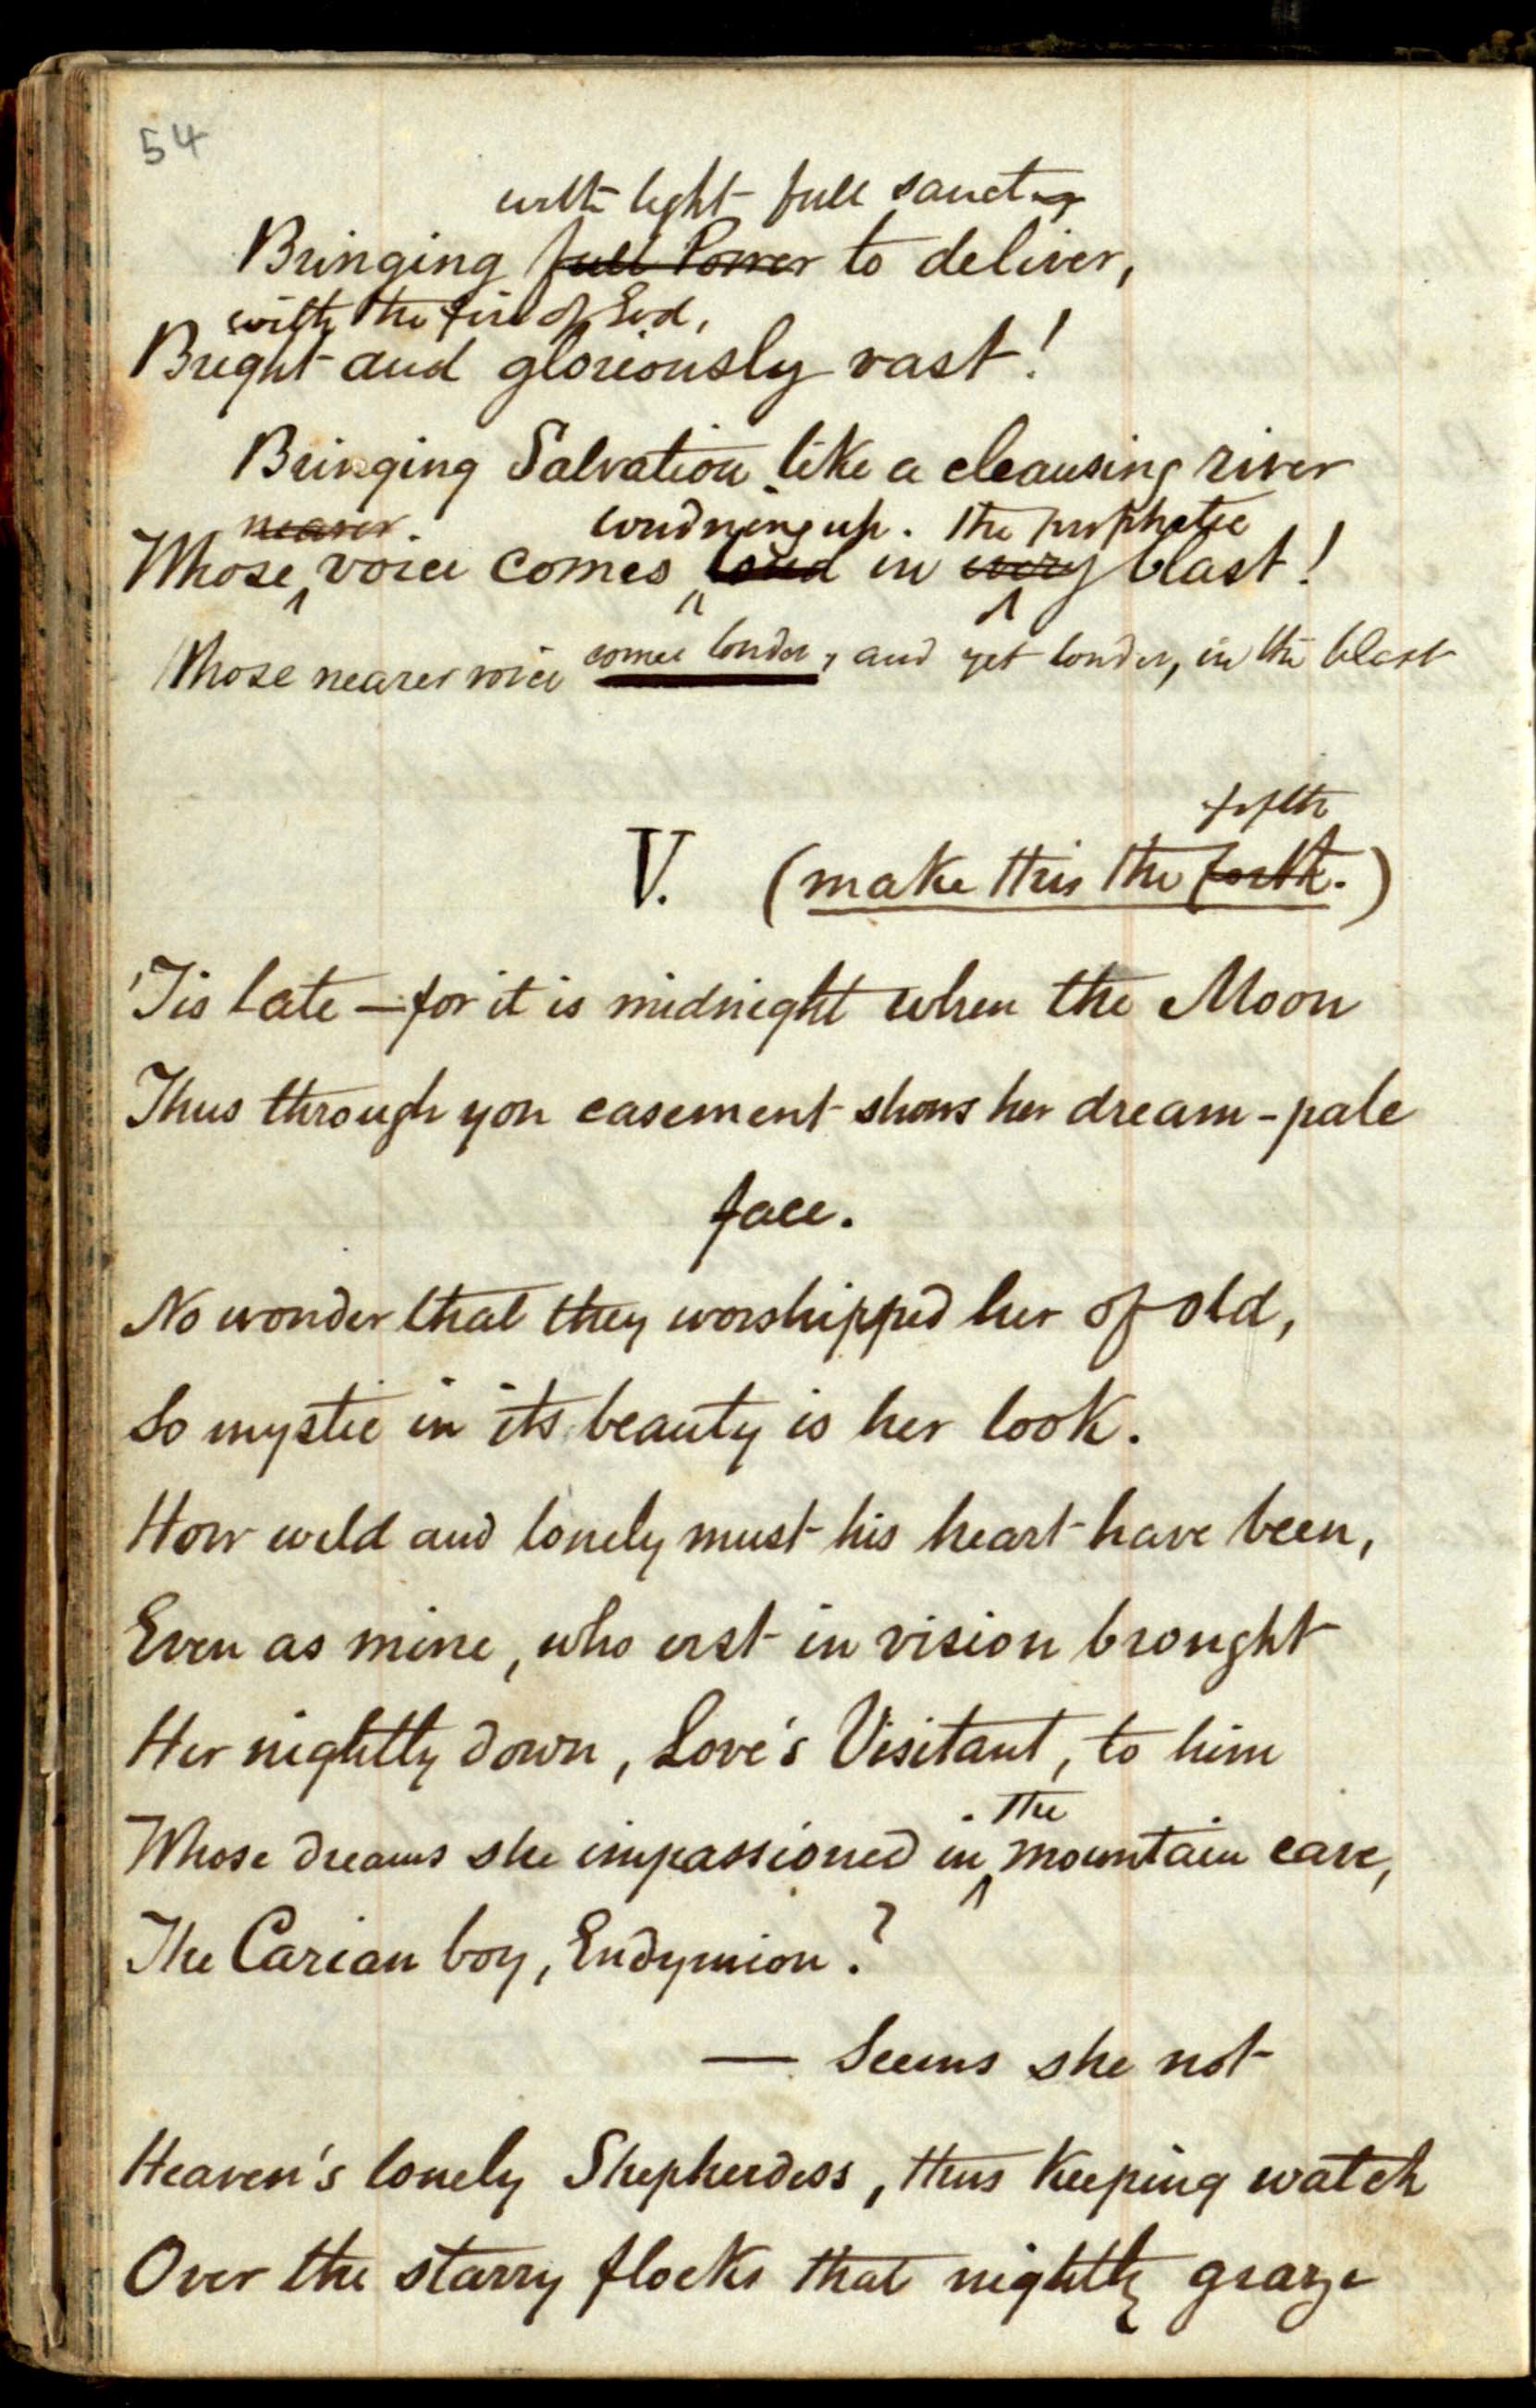 54
with light full sanct
Bringing full Power to deliver,
with the fire of God,
Bright and gloriously vast!
Bringing Salvation like a cleansing river
nearer. up. the prophetic
Whose voice comes loud in every blast!
Whose nearer voice comes louder, and yet louder, in the blast
fifth
V. (make this the forth.)
'Tis late—for it is midnight when the Moon
Thus through yon casement shows her dream-pale
face.
No wonder that they worshipped her of old,
So mystic in its beauty is her look.
How wild and lonely must his heart have been,
Even as mine, who erst in vision brought
Her nightly down, Love's Visitant, to him
the
Whose dreams she impassioned in mountain cave,
The Carian boy, Endymion.?
— Seems she not
Heaven's lonely Shepherdess, thus keeping watch
Over the starry flocks that nightly graze